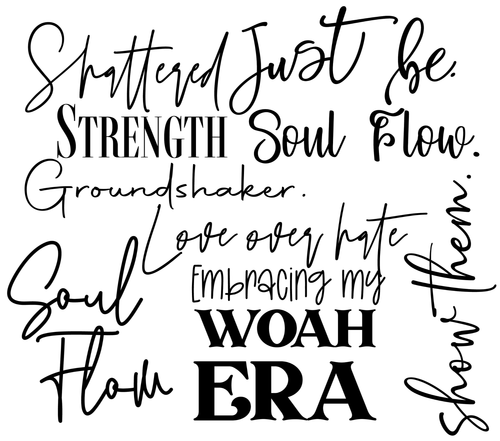 Shattered
Just be.
STRENGTH
Soul Flow.
Groundshaker.
Love over hate
Embracing my
WOAH
ERA
Soul
Flow
show them.